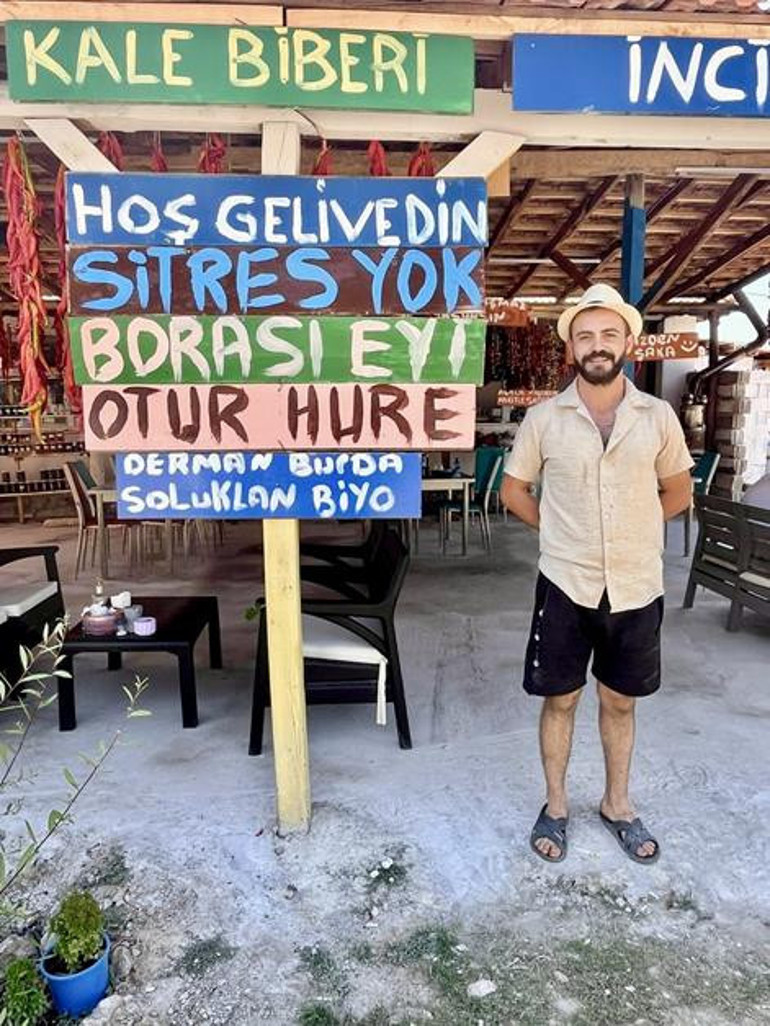 KALE BİBERİ
İNCİ
HOŞ GELİVEDİN
SİTRES YOK
BORASI EYİ
OTUR HURE
DERMAN BURDA
SOLUKLAN BİYO